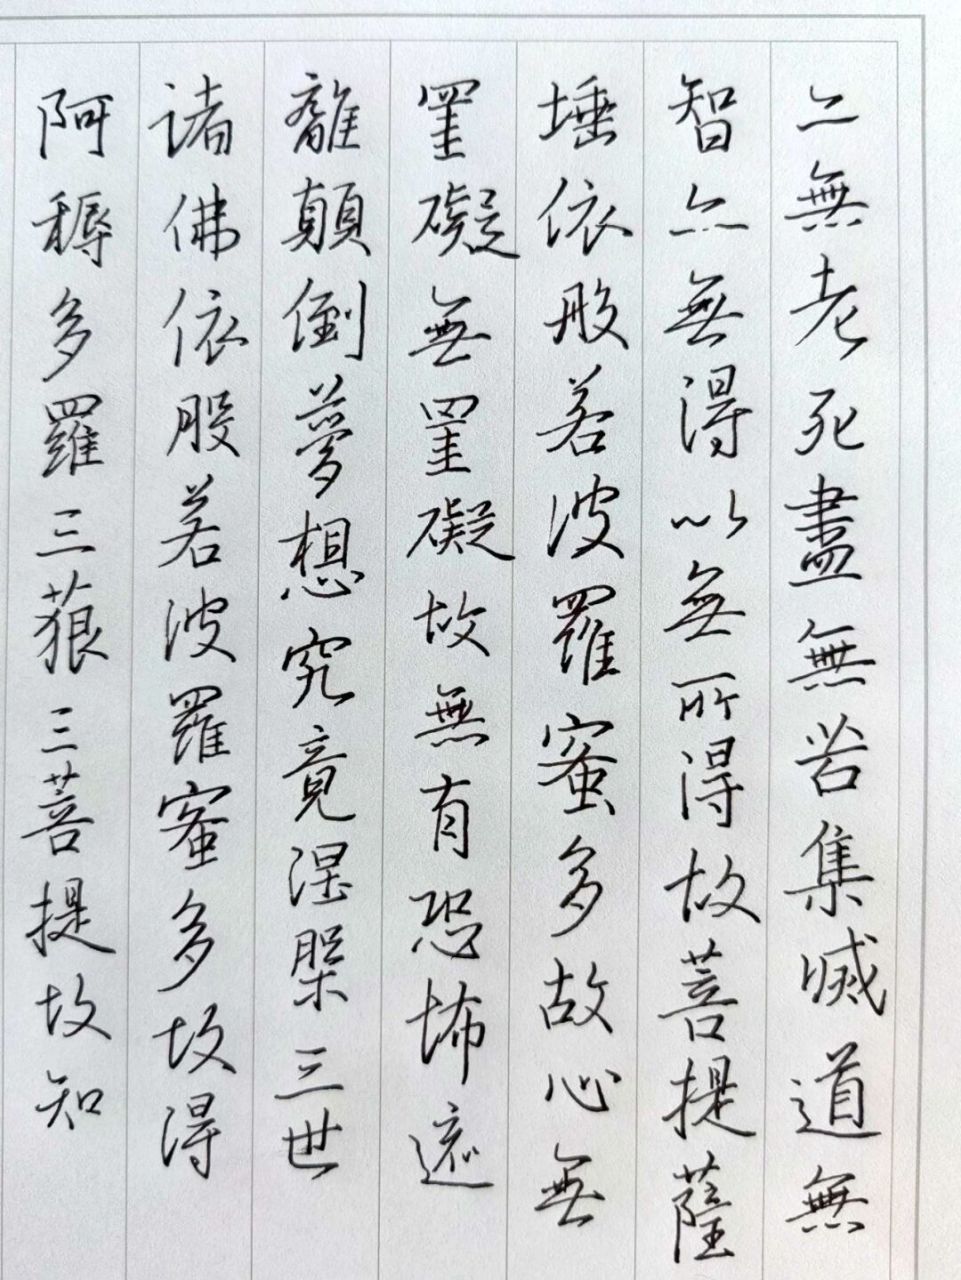 亠無老死盡無苦集滅道無
智亦無得以無所得故菩提薩
埵依般若波羅蜜多故心無
罣礙無罣礙故無有恐怖遠
離顛倒夢想究竟涅槃三世
諸佛依般若波羅蜜多故得
阿耨多羅三藐三菩提故知